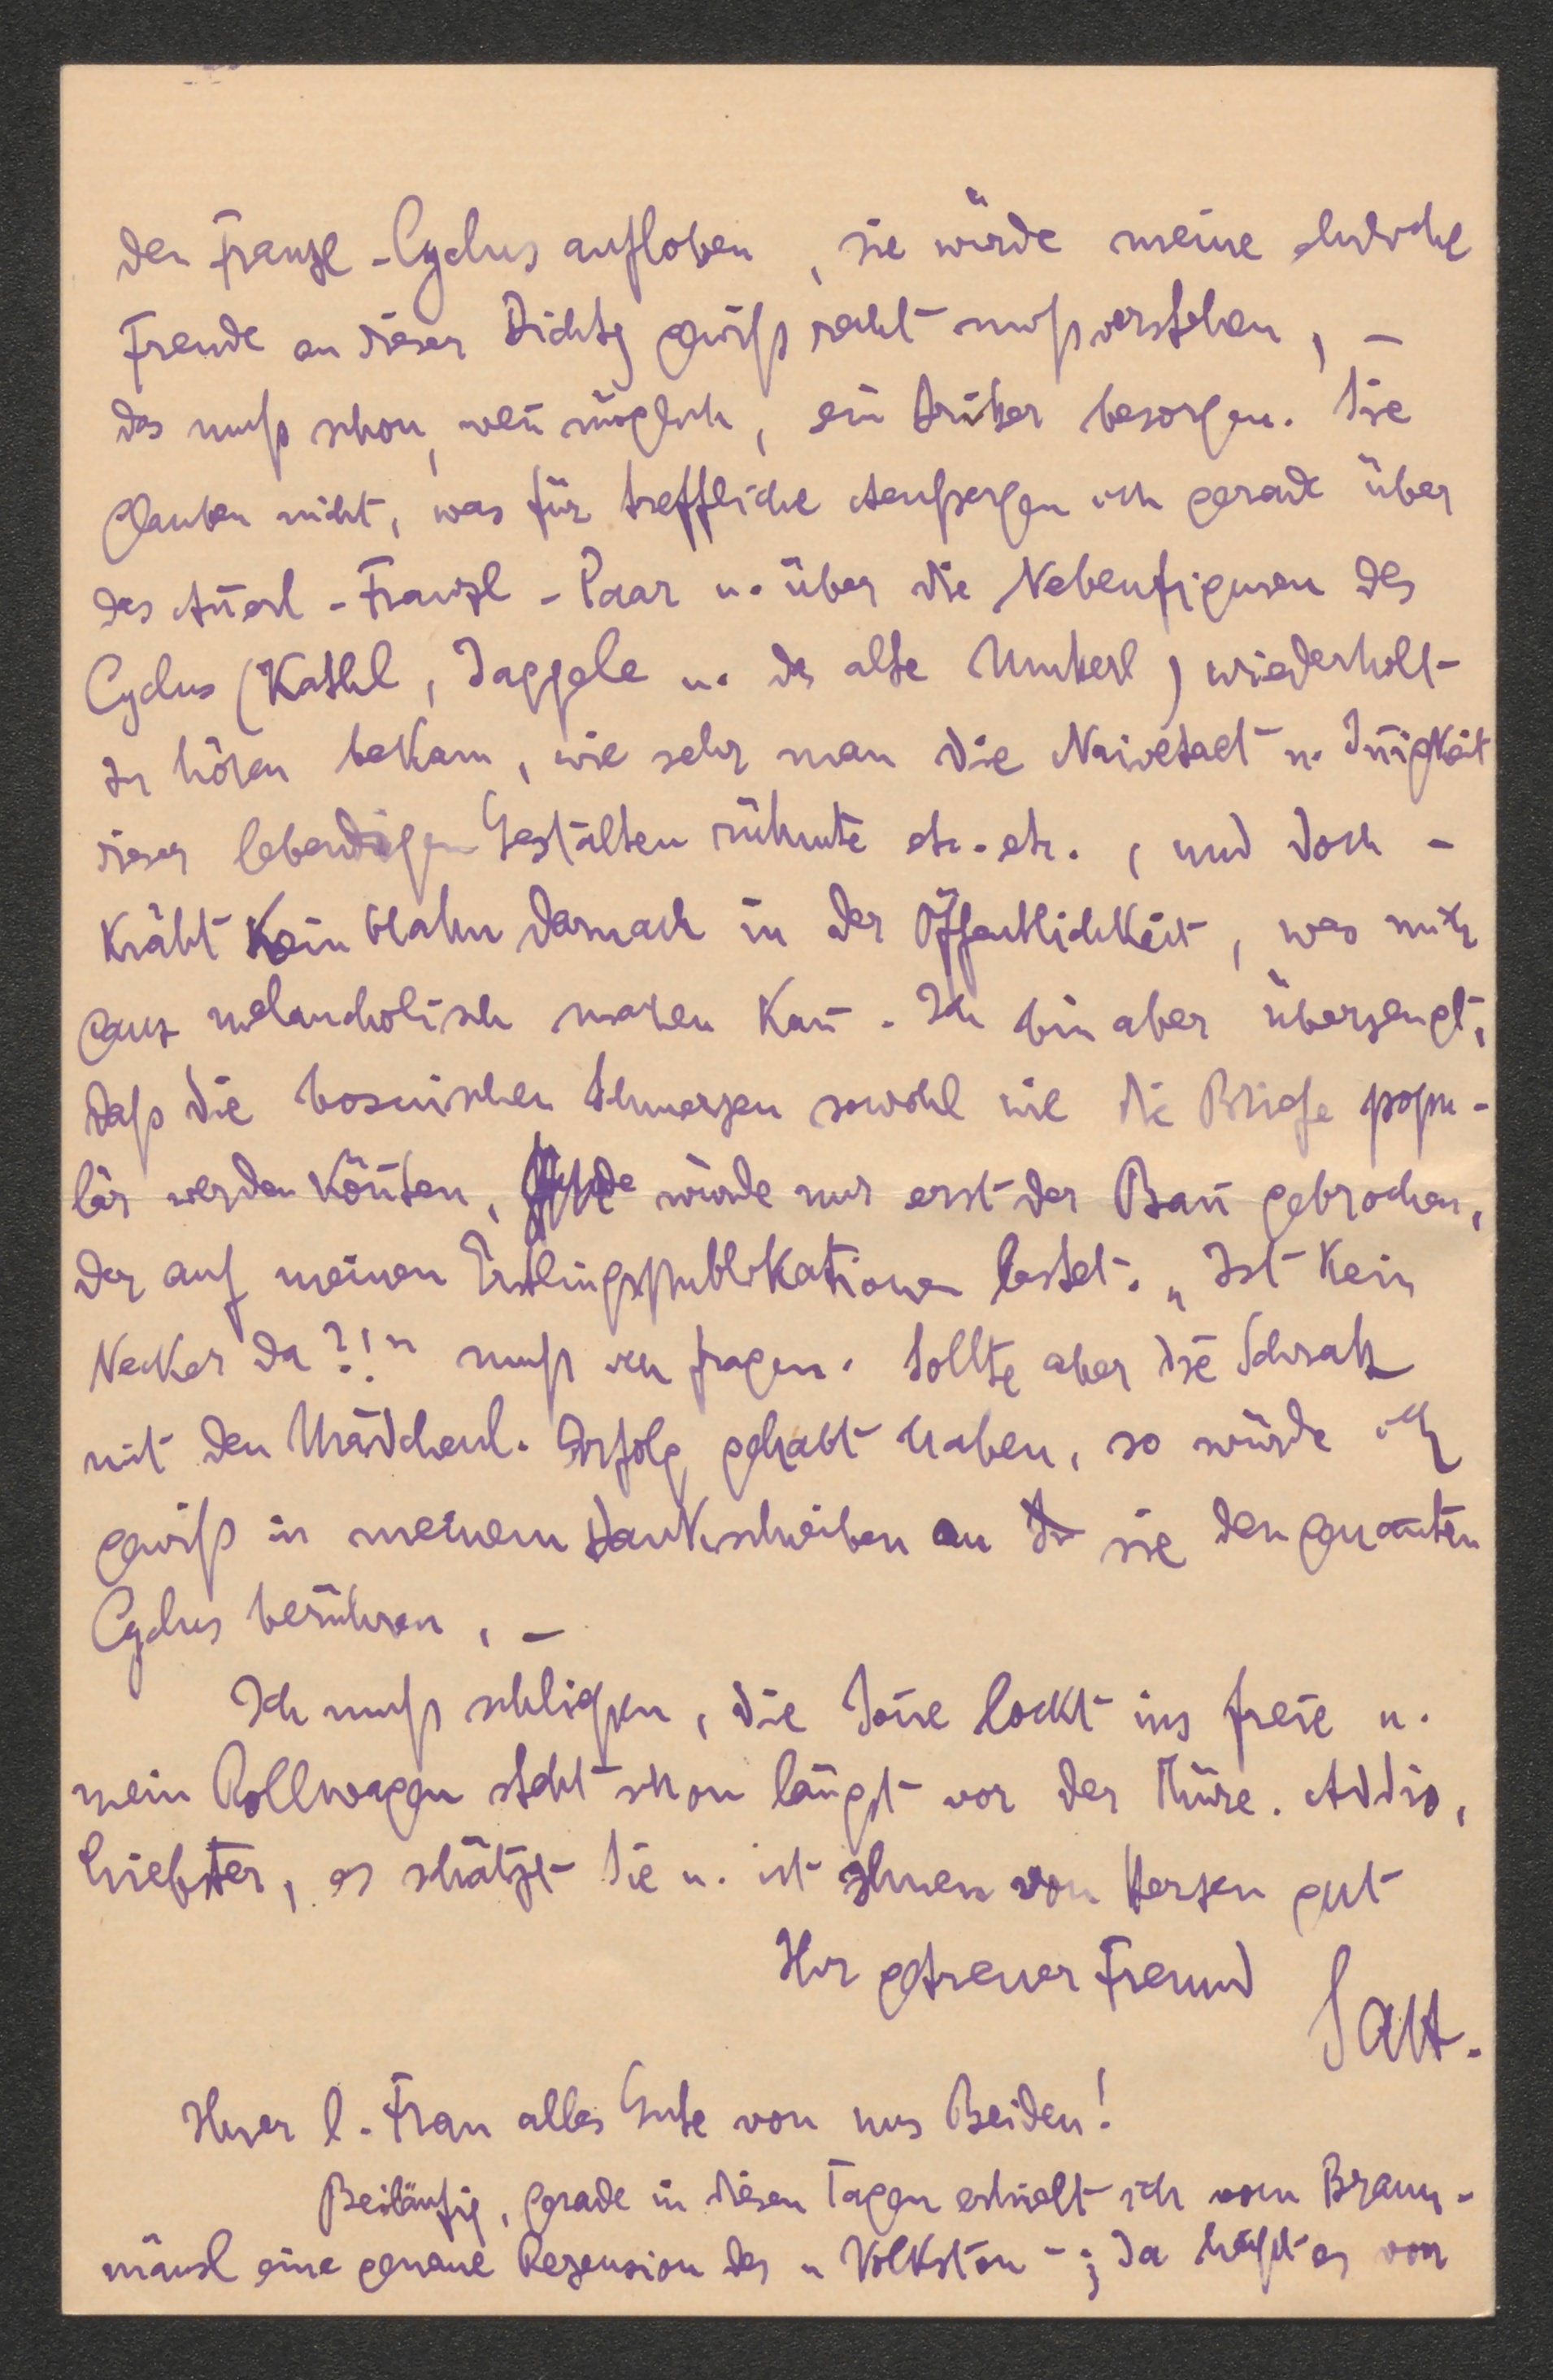 den Franzl-Cyclus aufloben, sie würde meine
Freude an dieser Dichtg gewiß recht mißverstehen, –
das muß schon, weñ möglich, ein Dritter besorgen. Sie
glauben nicht, was für treffliche Aeußergen ich gerade über
das Añerl-Franzl-Paar u. über die Nebenfiguren des
Cyclus (Kathl, Jaggele u. der alte Unkerl) wiederholt
zu hören bekam, wie sehr man die Naivetaet u. Iñigkeit
dieser lebendigen Gestalten rühmte etc. etc., und doch –
kräht kein Hahn darnach in der Öffentlichkeit, was mich
ganz melancholisch machen kañ. Ich bin aber überzeugt,
daß die bosnischen Schmerzen sowohl wie die Briefe popu-
lär werden köñten, würde nur erst der Bañ gebrochen,
der auf meinen Erstlingspublikationen lastet. „Ist kein
Necker da?!" muß ich fragen. Sollte aber die Schratt
mit den Mädchenl. Erfolg gehabt haben, so würde ich
gewiß in meinem Dankschreiben an sie den genañten
Cyclus berühren, –
Ich muß schließen, die Soñe lockt ins freie u.
mein Rollwagen steht schon längst vor der Thüre. Addio,
Liebster, es schätzt Sie u. ist Ihnen von Herzen gut
Ihr getreuer Freund
Ihrer l. Frau alles Gute von uns Beiden!
Beiläufig, gerade in diesen Tagen erhielt ich vom Braun-
mäusl eine genaue Rezension des „Volkston"; da heißt es von